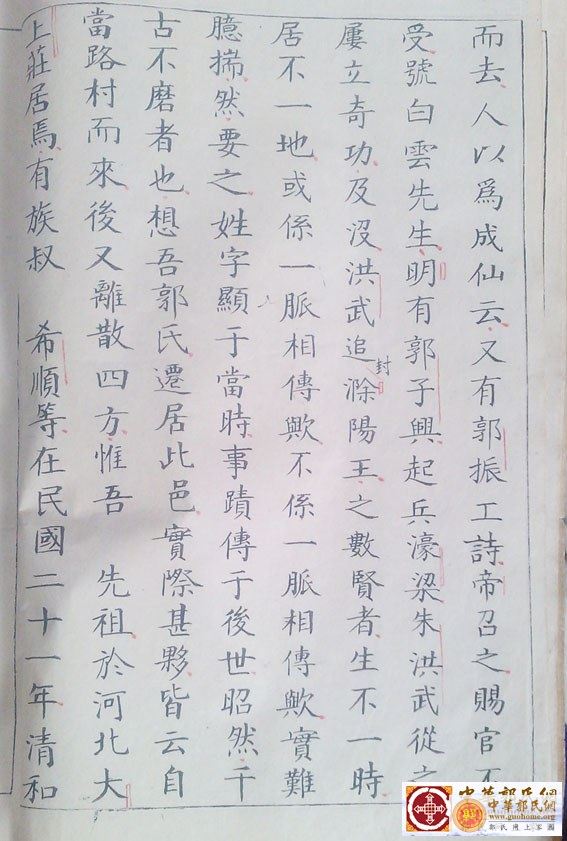 而去人以爲成仙云又有郭振工詩帝召之賜官不
受號白雲先生明有郭子興起兵濠梁朱洪武從之
屢立奇功及沒洪武追封滁陽王之數賢者生不一時
居不一地或係一脈相傳歟不係一脈相傳歟實難
臆揣然要之姓字顯于當時事蹟傳于後世昭然千
古不磨者也想吾郭氏遷居此邑實際甚夥皆云自
當路村而來後又離散四方惟吾 先祖於河北大
上莊居焉有族叔 希順等在民國二十一年清和
中華郭氏網
中華郭氏網
www.guohome.org
郭氏網上家園